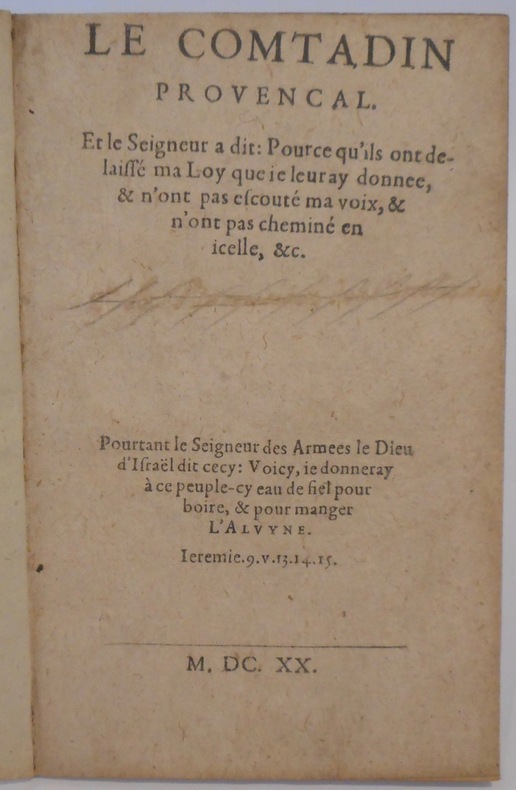 LE COMTADIN
PROVENCAL.
Et le Seigneur a dit: Pource qu'ils ont de-
laiſſé ma Loy que ie leuray donnee,
& n'ont pas eſcouté ma voix, &
n'ont pas cheminé en
icelle, &c.
Pourtant le Seigneur des Armees le Dieu
d'Iſraël dit cecy: Voicy, ie donneray
à ce peuple-cy eau de fiel pour
boire, & pour manger
L'ALVYNE.
Ieremie.9.v.13.14.15.
M. DC. XX.